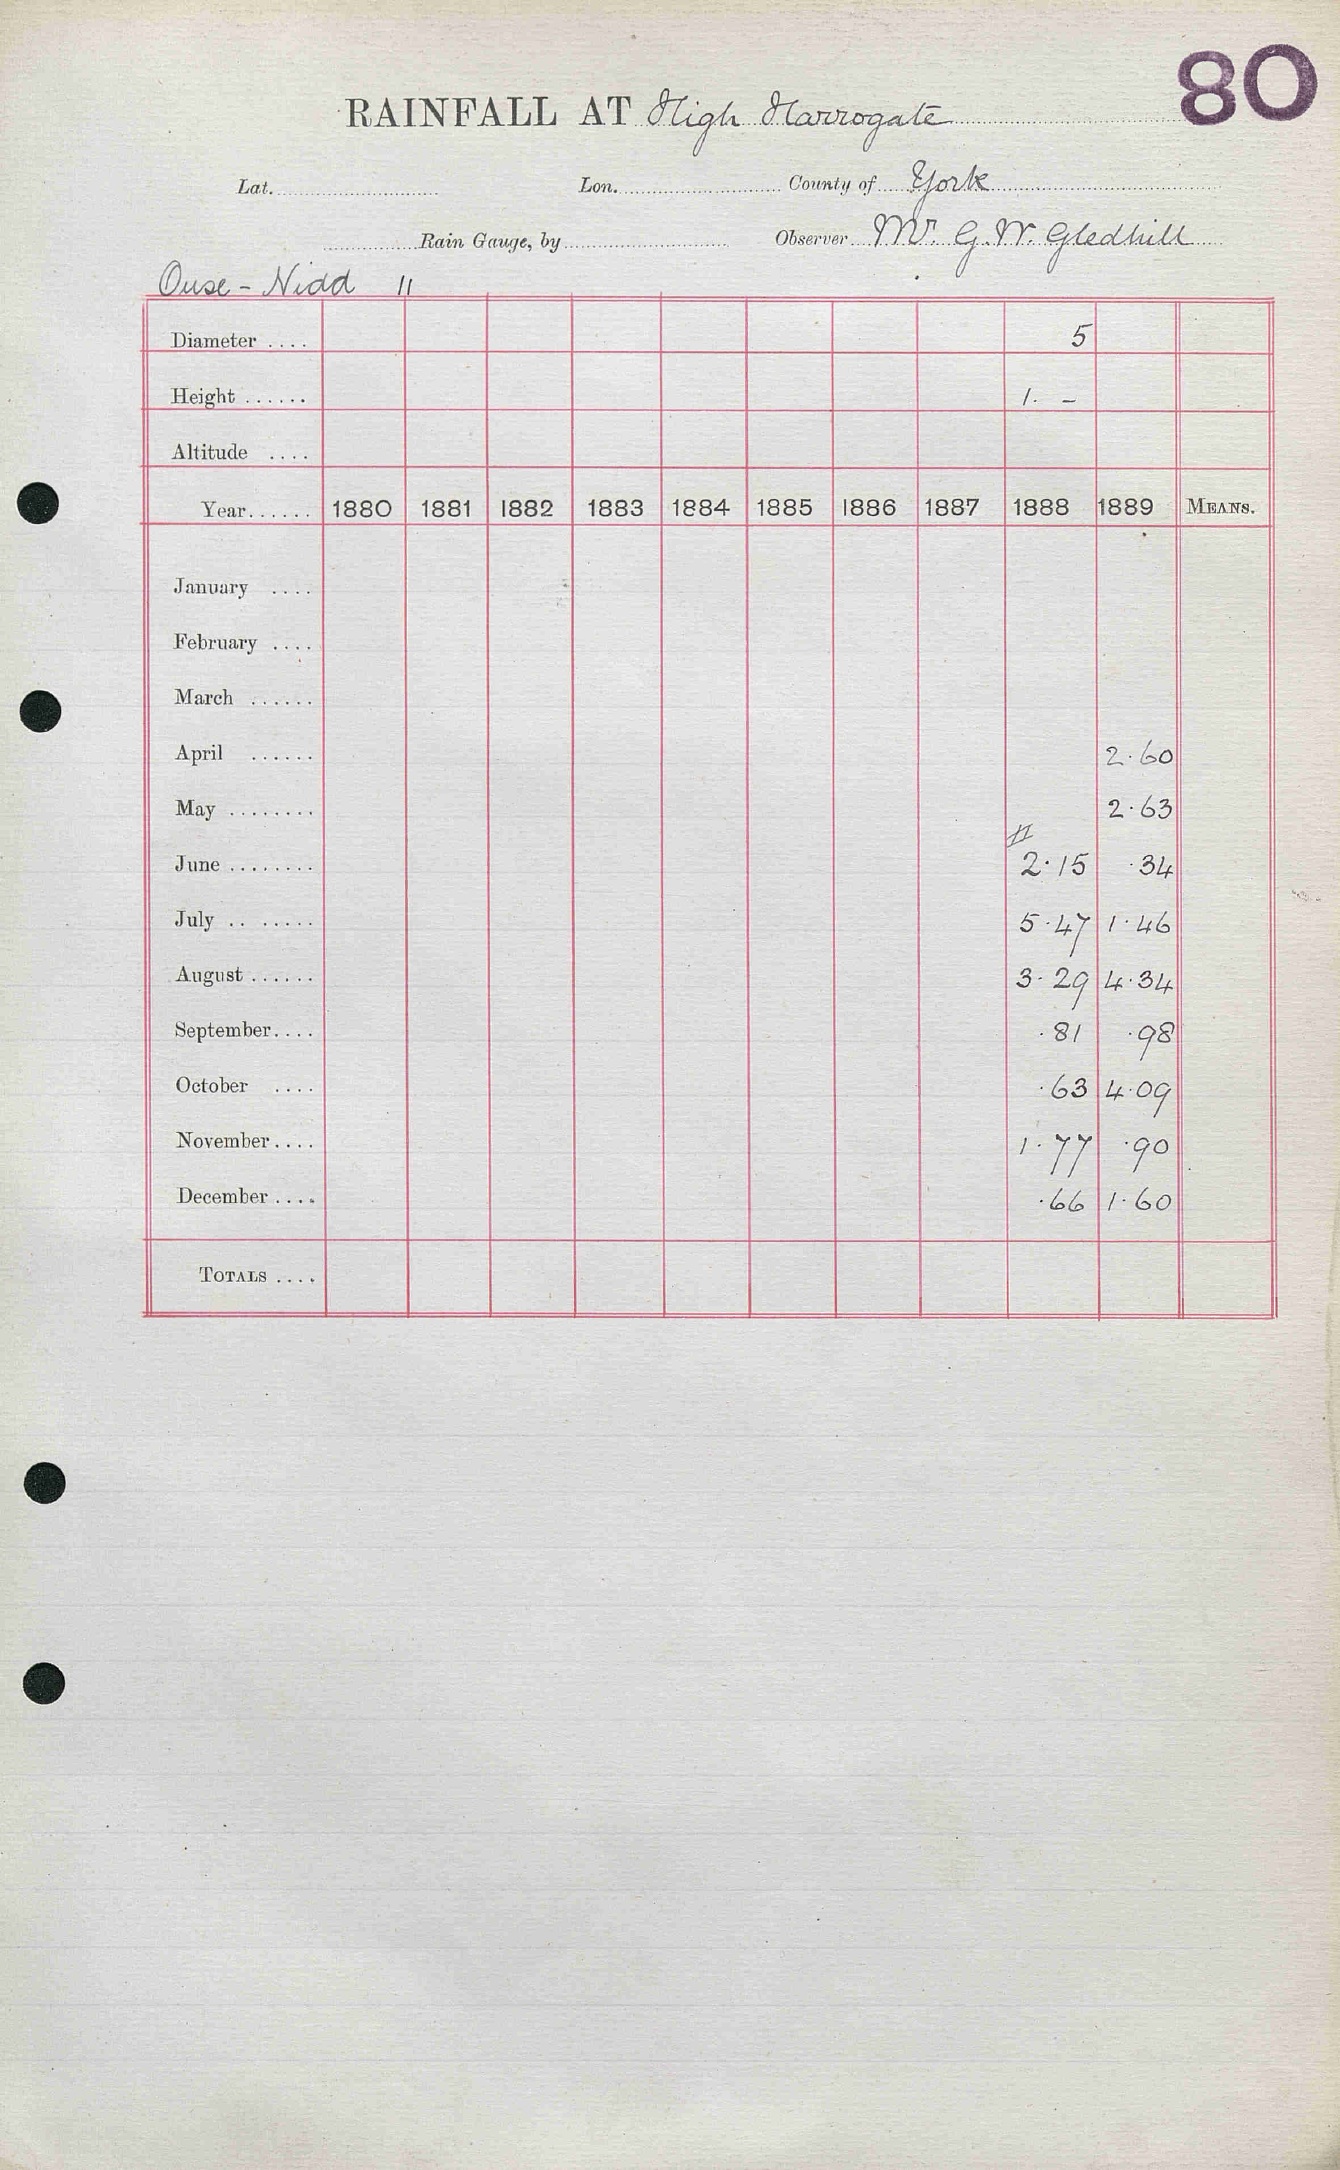 80
RAINFALL AT High Harrogate
Lat. Lon. County of York
Rain Gauge, by Observer Mr. G. W. Gledhill
Ouse - Nidd 11
Diameter .... 5
Height ...... 1. -
Altitude ....
Year...... 1880 1881 1882 1883 1884 1885 1886 1887 1888 1889 MEANS.
January ....
February ....
March ......
April ...... 2.60
May ........ 2.63
#
June ........ 2.15 .34
July .. ...... 5.47 1.46
August ...... 3.29 4.34
September.... .81 .98
October .... .63 4.09
November.... 1.77 .90
December .... .66 1.60
TOTALS ....